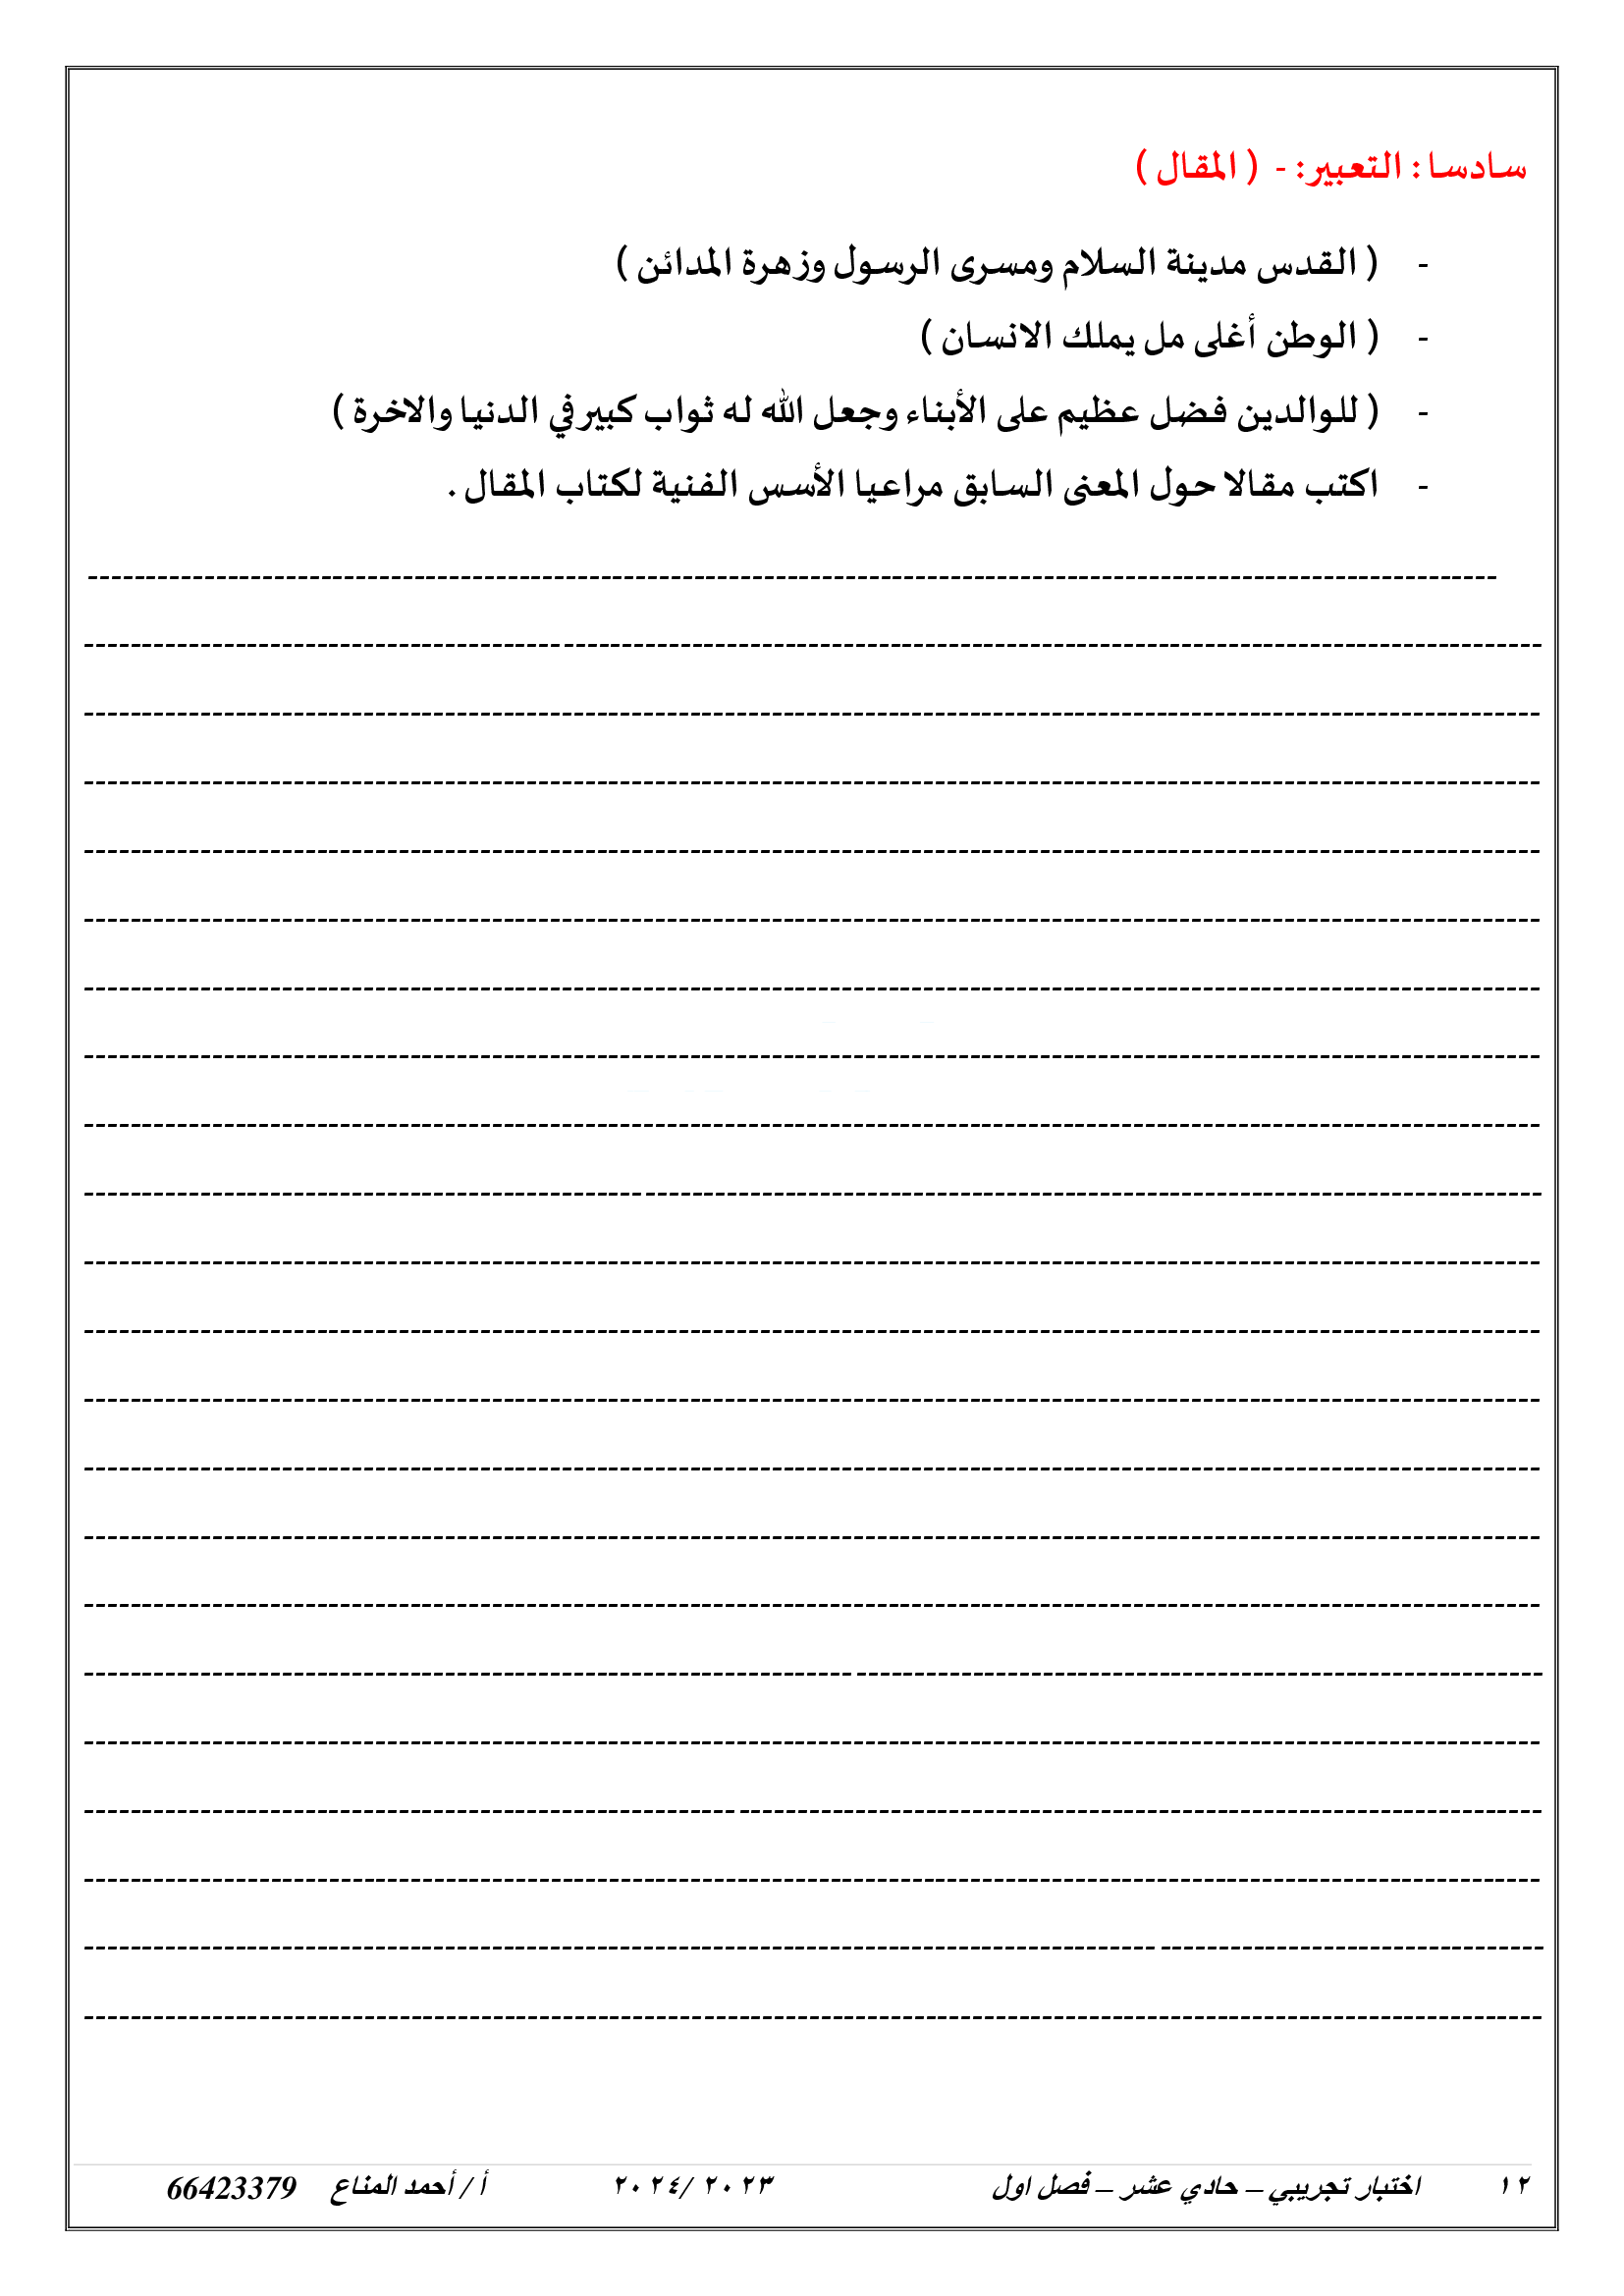 سادسا : التعبير : - ( المقال )
- ( القدس مدينة السلام ومسرى الرسول وزهرة المدائن )
- ( الوطن أغلى مل يملك الانسان )
- ( للوالدين فضل عظيم على الأبناء وجعل الله له ثواب كبير في الدنيا والاخرة )
- اكتب مقالا حول المعنى السابق مراعيا الأسس الفنية لكتاب المقال .
١٢ اختبار تجريبي – حادي عشر – فصل اول ٢٠٢٣ /٢٠٢٤ أ / أحمد المناع 66423379